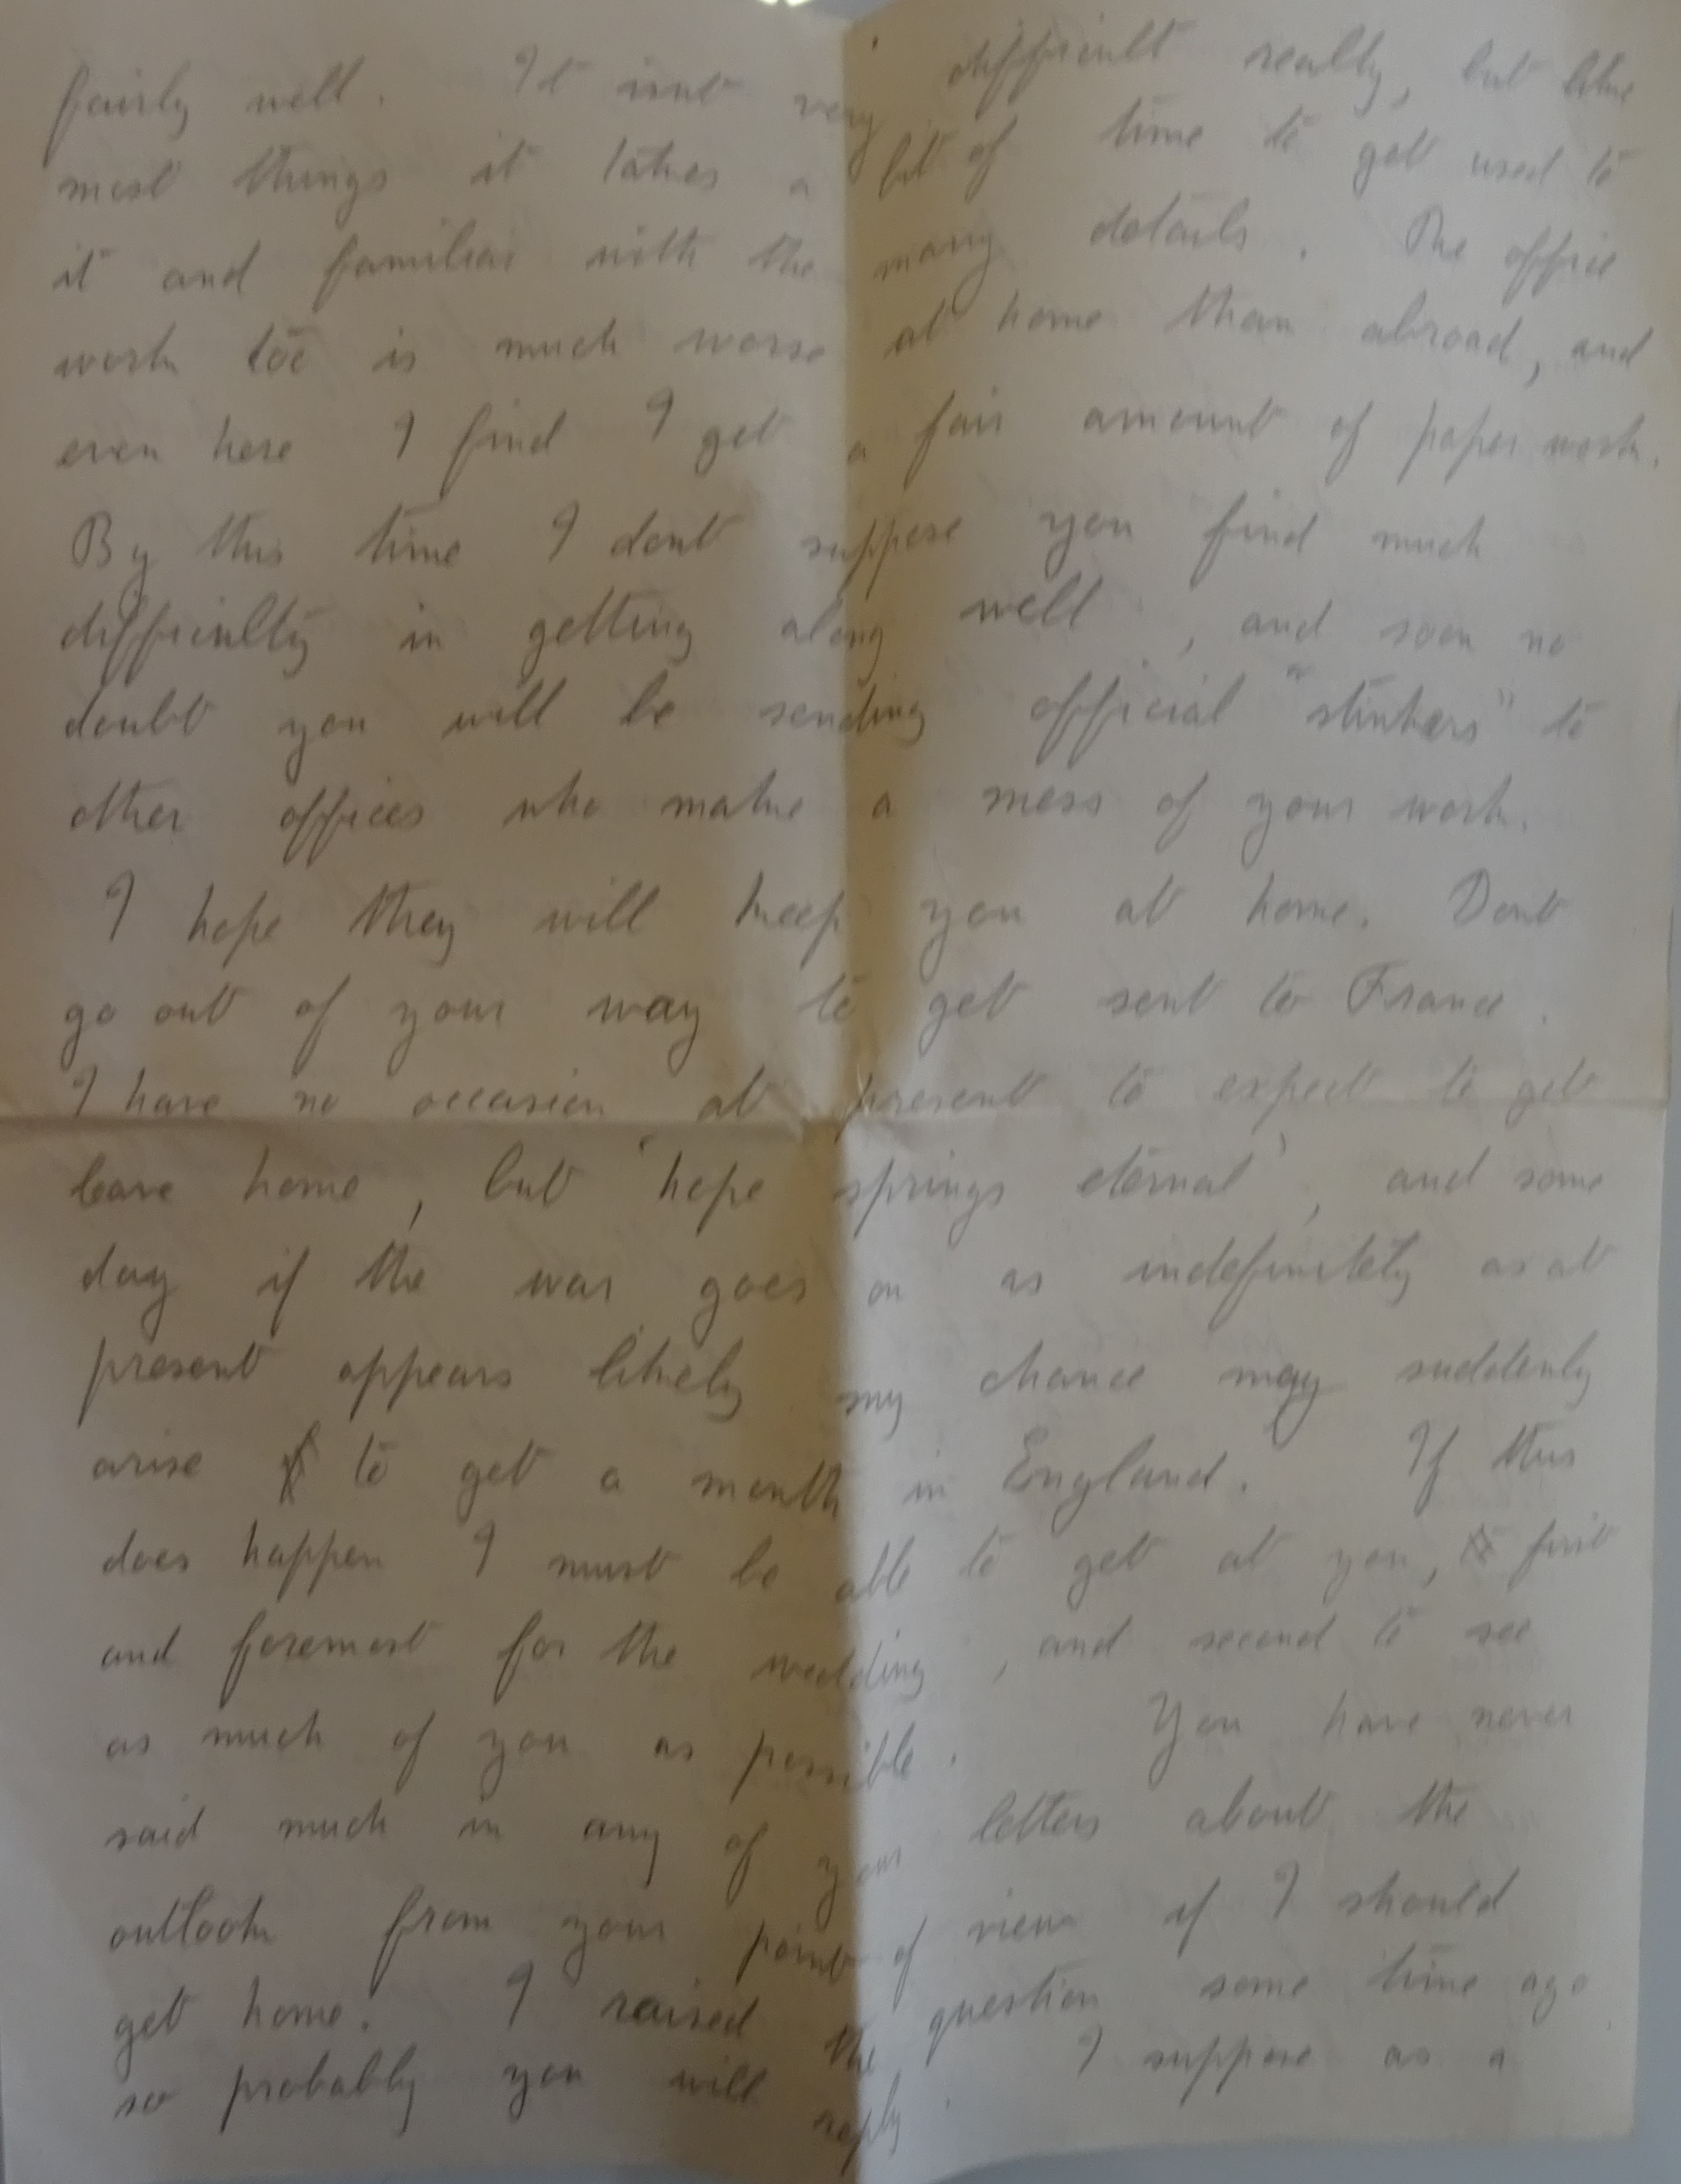 fairly well. It isnt very difficult really, but like
most things it takes a bit of time to get used to
it and familiar with the many details. The office
work too is much worse at home than abroad, and
even here I find I get a fair amount of paper work.
By this time I dont suppose you find much
difficulty in getting along well, and soon no
doubt you will be sending official "stinkers" to
other offices who make a mess of your work.
I hope they will keep you at home. Dont
go out of your way to get sent to France.
I have no occasion at present to expect to get
leave home, but 'hope springs eternal', and some
day if the war goes on as indefinitely as at
present appears likely my chance may suddenly
arise to get a month in England. If this
does happen I must be able to get at you, first
and foremost for the wedding, and second to see
as much of you as possible. You have never
said much in any of your letters about the
outlook from your point of view if I should
get home. I raised the question some time ago
so probably you will reply. I suppose as a